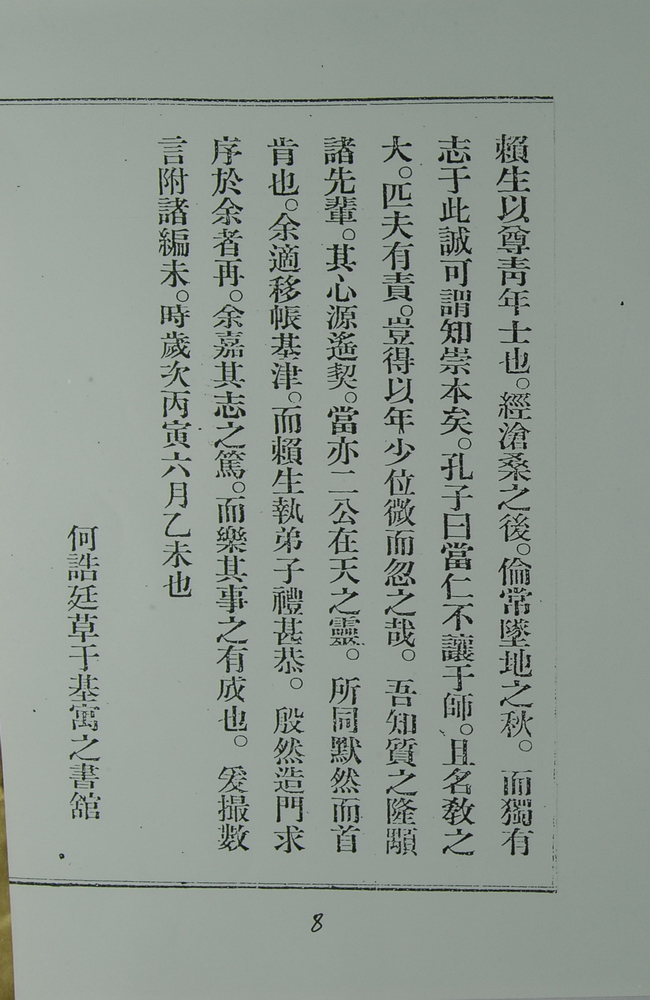 賴生以尊靑年士也。經滄桑之後。倫常墜地之秋。而獨有
志于此誠可謂知崇本矣。孔子曰當仁不讓于師。且名敎之
大。匹夫有責。豈得以年少位微而忽之哉。吾知質之隆顯
諸先輩。其心源遙契。當亦二公在天之靈。所同默然而首
肯也。余適移帳基津。而賴生執弟子禮甚恭。殷然造門求
序於余者再。余嘉其志之篤。而樂其事之有成也。爰撮數
言附諸編末。時歲次丙寅六月乙未也
何誥廷草于基寓之書舘
8